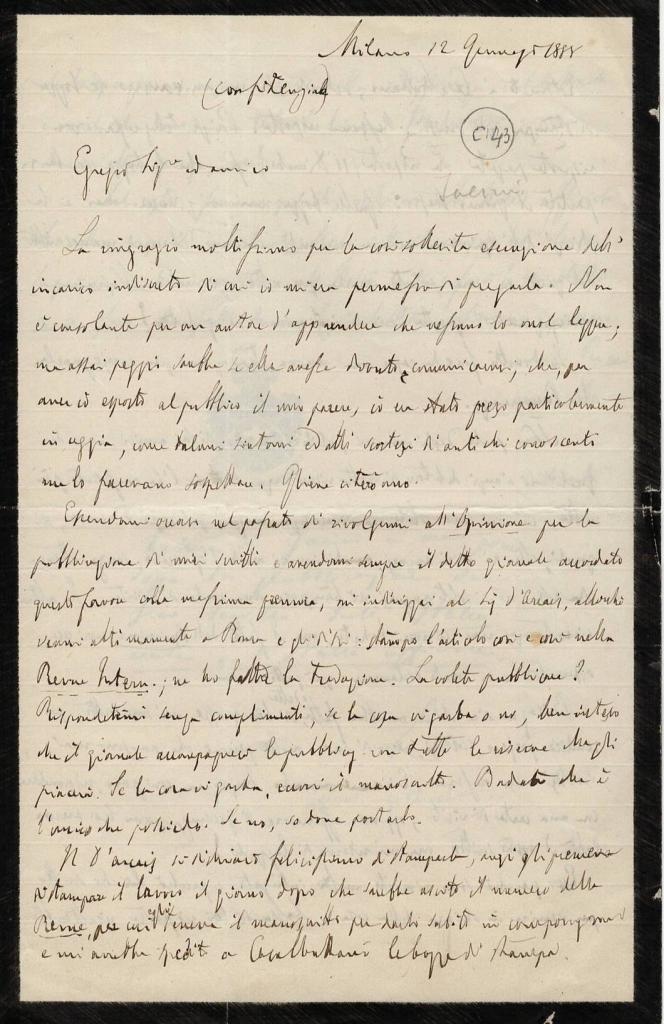 Milano 12 Gennajo 1888
(confidenziale)
C. 43
Egregio Sigre ed amico
La ringrazio moltissimo per la così sollecita esecuzione dell'
incarico indiscreto di cui io mi era permesso di pregarla. Non
è consolante per un autore d'apprendere che nessuno lo vuol leggere;
ma assai peggio sarebbe se ella avesse dovuto comunicarmi, che, per
aver io esposto al pubblico il mio parere, io era stato preso particolarmente
in uggia, come taluni sintomi ed atti scortesi di antichi conoscenti
me lo facevano sospettare. Gliene citerò uno.
Essendomi occorso nel passato di rivolgermi all'Opinione per la
pubblicazione di miei scritti e avendomi sempre il detto giornale accordato
questo favore colla massima premura, mi indirizzai al Sig. d'Arcais, allorché
venni ultimamente a Roma e gli dissi: stampo l'articolo così e così nella
Revue Intern.; ne ho fatto la traduzione. La volete pubblicare?
Rispondetemi senza complimenti, se la cosa vi garba o no, ben inteso
che il giornale accompagnerà la pubblicaz. con tutte le riserve che gli
piacerà. Se la cosa vi garba, eccovi il manoscritto. Badate che è
l'unico che possiedo. Se no, so dove portarlo.
Il D'Arcais si dichiarò felicissimo di stamparlo, anzi gli premeva
di stampare il lavoro il giorno dopo che sarebbe uscito il numero della
Revue, per cui egli teneva il manoscritto per darlo subito in composizione
e mi avrebbe spedito a Casalbuttano le bozze di stampa.